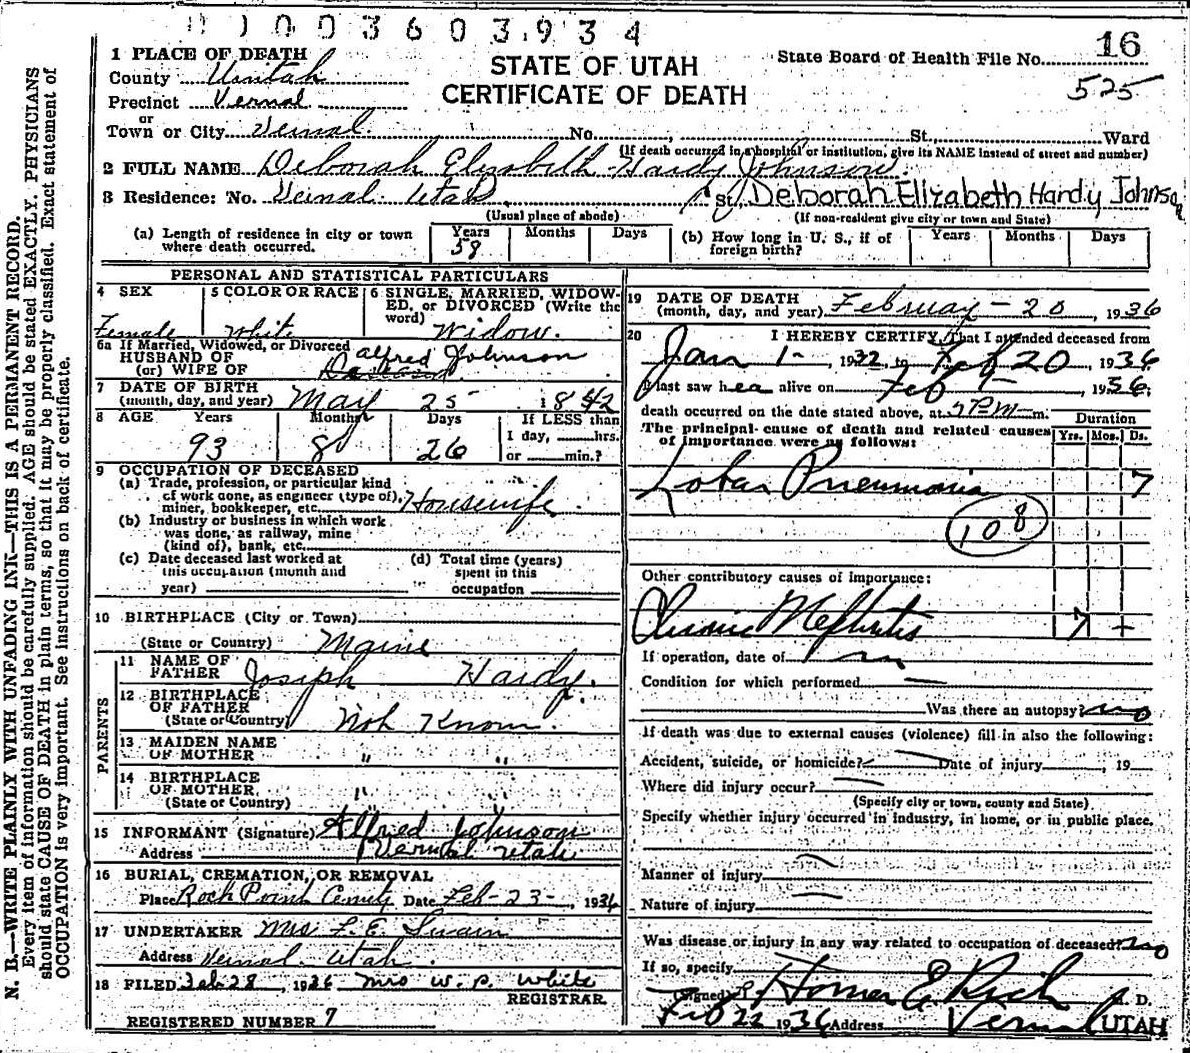 0 1 0 0 3 6 0 3 9 3 4
16
State Board of Health File No.
525
STATE OF UTAH
CERTIFICATE OF DEATH
1 PLACE OF DEATH
County Uintah
Precinct Vernal
or
Town or City Vernal No. St. Ward
(If death occurred in a hospital or institution, give its NAME instead of street and number)
2 FULL NAME Deborah Elizabeth Hardy Johnson
3 Residence: No. Vernal Utah St. Deborah Elizabeth Hardy Johnson
(Usual place of abode) (If non-resident give city or town and State)
(a) Length of residence in city or town where death occurred. Years 58 Months Days
(b) How long in U. S., if of foreign birth? Years Months Days
PERSONAL AND STATISTICAL PARTICULARS
4 SEX Female
5 COLOR OR RACE White
6 SINGLE, MARRIED, WIDOWED, or DIVORCED (Write the word) Widow.
6a If Married, Widowed, or Divorced
HUSBAND OF
(or) WIFE OF Alfred Johnson
7 DATE OF BIRTH
(month, day, and year) May 25 1842
8 AGE Years 93 Months 8 Days 26
If LESS than
1 day, hrs.
or min.?
9 OCCUPATION OF DECEASED
(a) Trade, profession, or particular kind of work done, as engineer (type of), miner, bookkeeper, etc. Housewife
(b) Industry or business in which work was done, as railway, mine (kind of), bank, etc.
(c) Date deceased last worked at this occupation (month and year)
(d) Total time (years) spent in this occupation
10 BIRTHPLACE (City or Town)
(State or Country) Maine
PARENTS
11 NAME OF FATHER Joseph Hardy.
12 BIRTHPLACE OF FATHER
(State or Country) Not Known.
13 MAIDEN NAME OF MOTHER " "
14 BIRTHPLACE OF MOTHER
(State or Country) " "
15 INFORMANT (Signature) Alfred Johnson
Address Vernal Utah
16 BURIAL, CREMATION, OR REMOVAL
Place Rock Point Cemety Date Feb-23-, 1936
17 UNDERTAKER Mrs. L. E. Swain
Address Vernal Utah.
18 FILED Feb 28, 1936 Mrs W. P. White
REGISTRAR
REGISTERED NUMBER 7
19 DATE OF DEATH
(month, day, and year) February - 20, 1936
20 I HEREBY CERTIFY, That I attended deceased from
Jan 1-, 1932, to Feb 20, 1936
I last saw her alive on Feb, 1936:
death occurred on the date stated above, at PM m.
The principal cause of death and related causes of importance were as follows:
Duration
Yrs. Mos. Ds.
Lobar Pneumonia 7
108
Other contributory causes of importance:
Chronic Nephritis 7 +
If operation, date of
Condition for which performed
Was there an autopsy? no
If death was due to external causes (violence) fill in also the following:
Accident, suicide, or homicide? Date of injury, 19
Where did injury occur?
(Specify city or town, county and State)
Specify whether injury occurred in industry, in home, or in public place.
Manner of injury
Nature of injury
Was disease or injury in any way related to occupation of deceased? no
If so, specify
Signed Homer E Rich M. D.
Feb 22 1936 Address Vernal UTAH
N. B.—WRITE PLAINLY WITH UNFADING INK—THIS IS A PERMANENT RECORD.
Every item of information should be carefully supplied. AGE should be stated EXACTLY. PHYSICIANS
should state CAUSE OF DEATH in plain terms, so that it may be properly classified. Exact statement of
OCCUPATION is very important. See instructions on back of certificate.